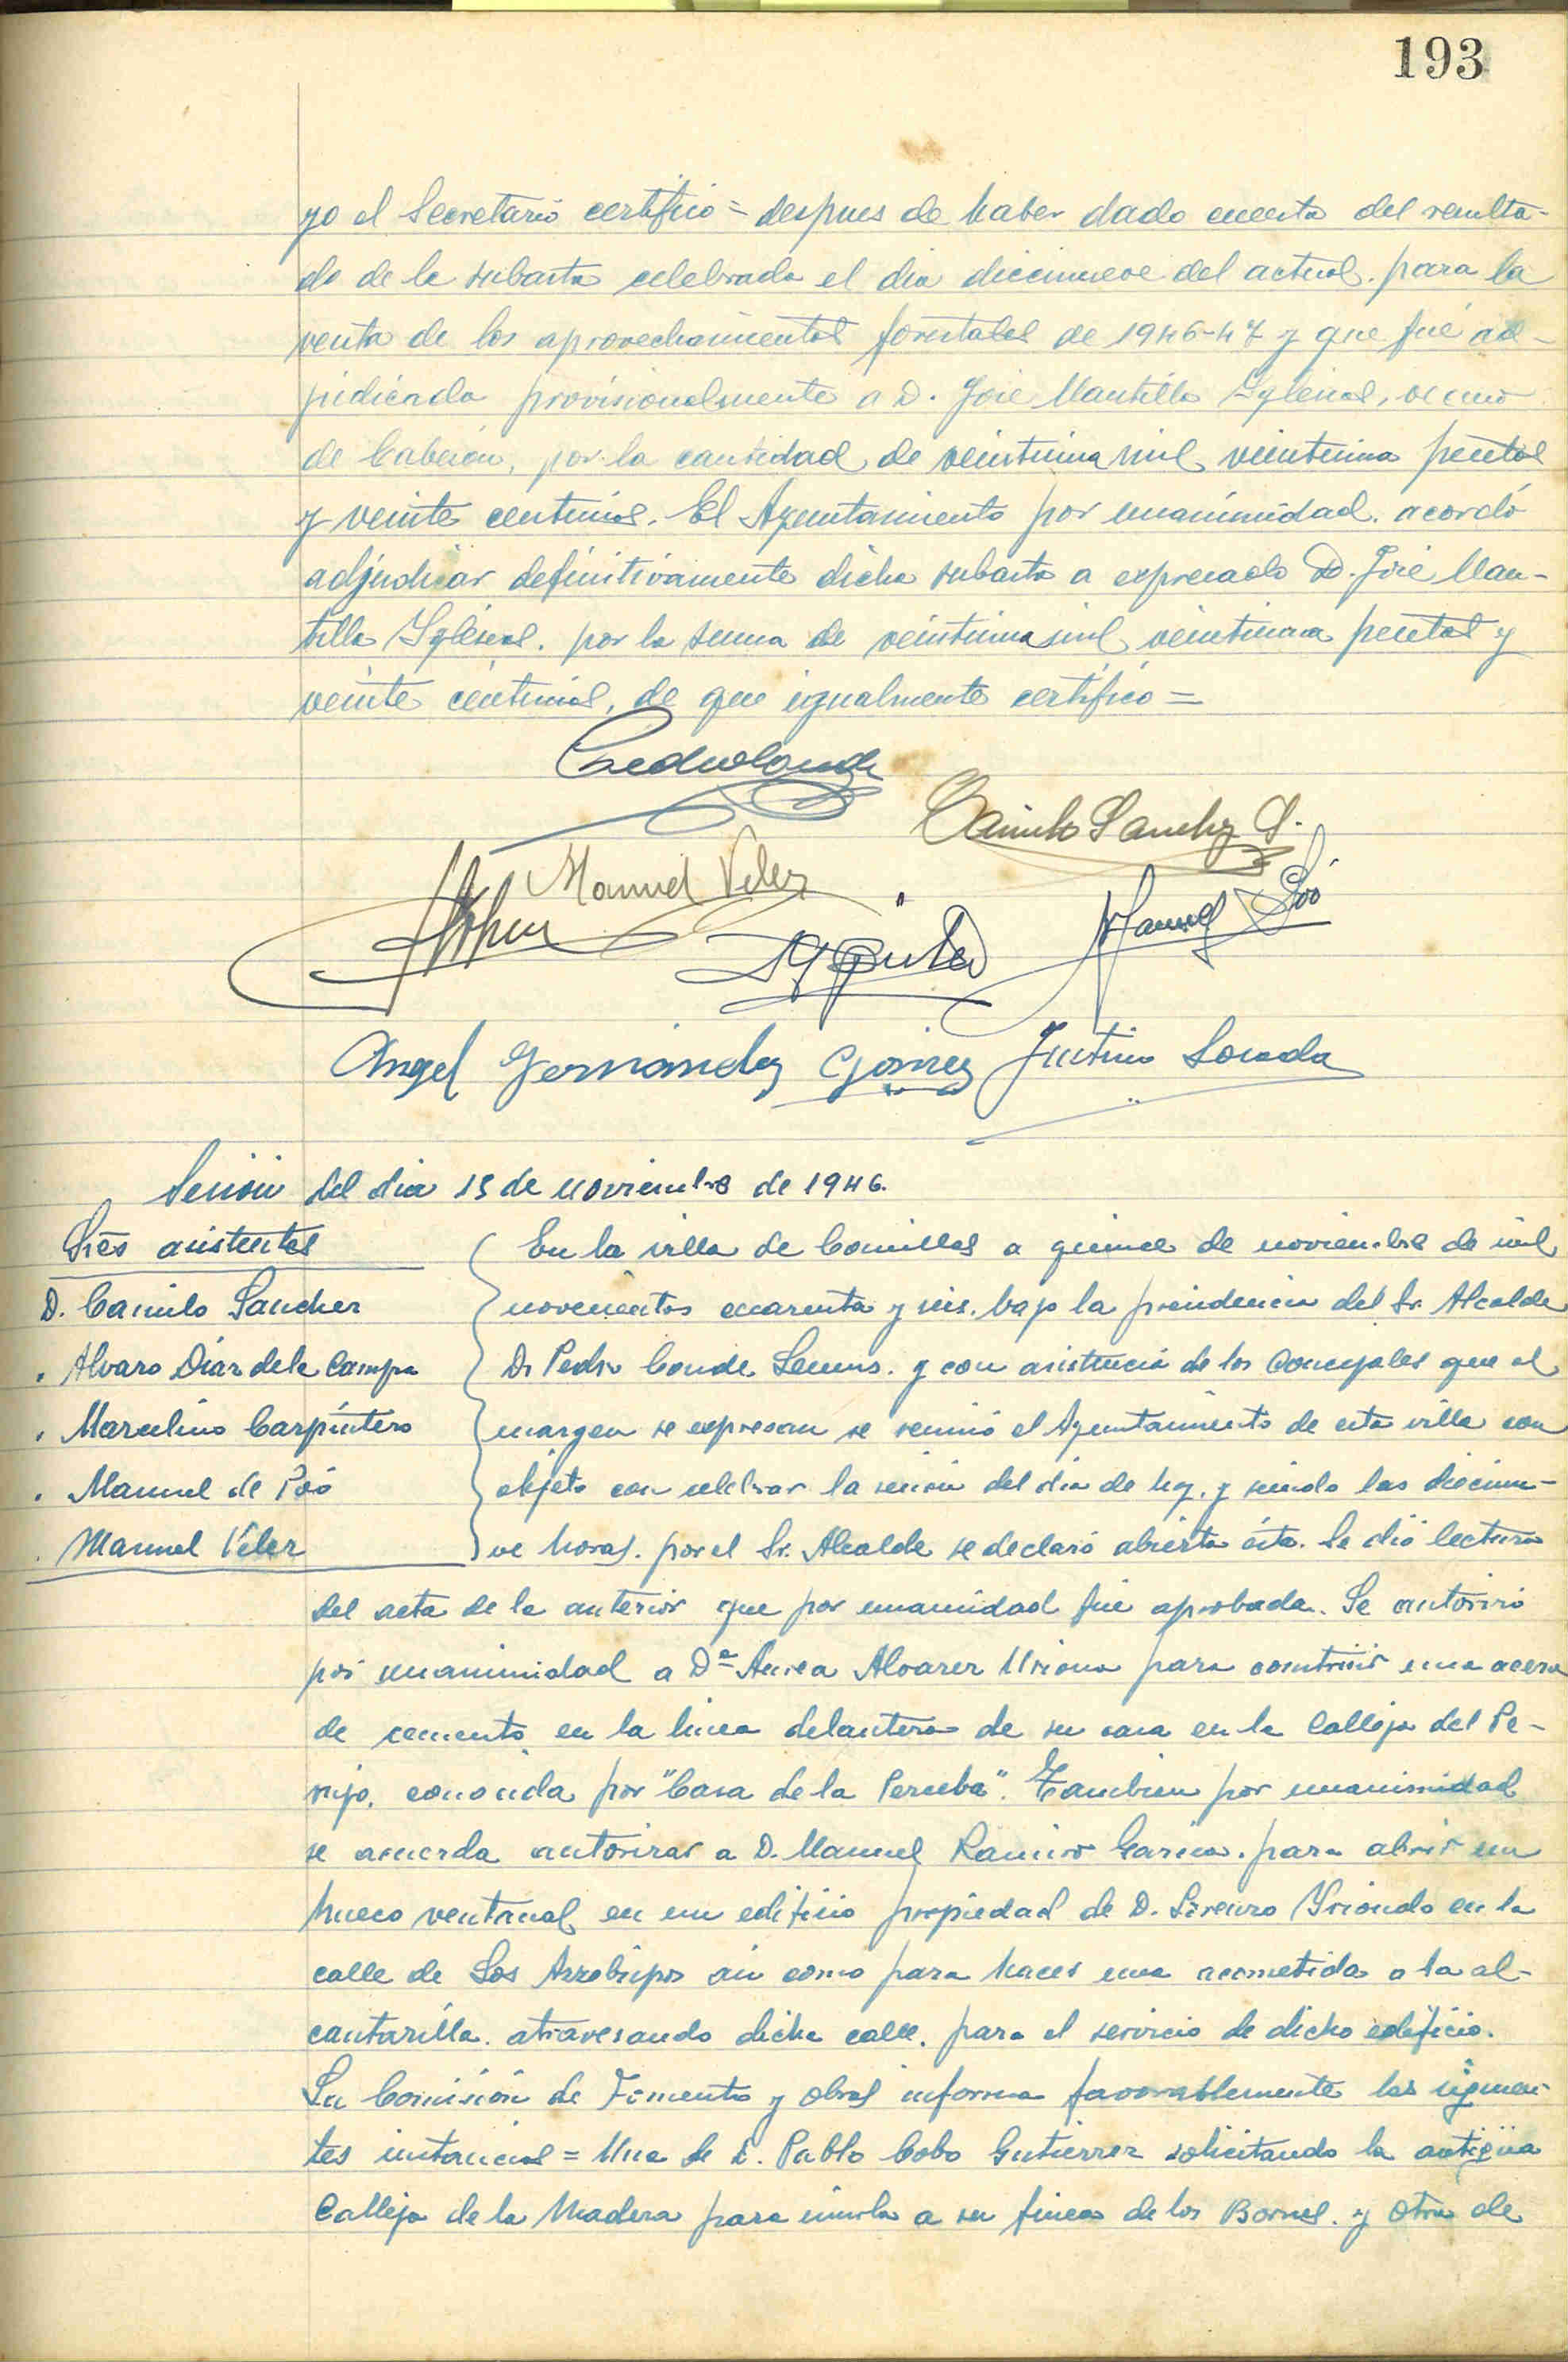 193
yo el Secretario certifico = despues de haber dado cuenta del resulta-
do de la subasta celebrada el dia diecinueve del actual. para la
venta de los aprovechamientos forestales de 1946-47 y que fué ad-
judicada provisionalmente a D. José Mantilla Yglesias, vecino
de Cabezón, por la cantidad de veintiuna mil veintiuna pesetas
y veinte centimos. El Ayuntamiento por unanimidad. acordó
adjudicar definitivamente dicha subasta a expresado D. José Man-
tilla Yglesias. por la suma de veintiuna mil veintiuna pesetas y
veinte céntimos, de que igualmente certifico =
Pedro Conde
Camilo Sanchez
Manuel Velez
Manuel Poó
Angel Fernández Gómez Justino Losada
Sesión del dia 15 de noviembre de 1946.
Sres asistentes
D. Camilo Sanchez
" Alvaro Diaz de la Campa
" Marcelino Carpintero
" Manuel de Poó
" Manuel Velez
En la villa de Comillas a quince de noviembre de mil
novecientos cuarenta y seis. bajo la presidencia del Sr. Alcalde
D. Pedro Conde Lemus. y con asistencia de los Concejales que al
margen se expresan se reunió el Ayuntamiento de esta villa con
objeto con celebrar la sesión del dia de hoy. y siendo las diecinue-
ve horas. por el Sr. Alcalde se declaró abierta ésta. Se dió lectura
del acta de la anterior que por unanimidad fue aprobada. Se autorizó
por unanimidad a Dª Aurea Alvarez para construir una acera
de cemento en la linea delantera de su casa en la Calleja del Pe-
rujo. conocida por "Casa de la Peruba". Tambien por unanimidad
se acuerda autorizar a D. Manuel Ramiro Garcia. para abrir un
hueco ventanal en un edificio propiedad de D. Lorenzo Yriondo en la
calle de Los Arzobispos asi como para hacer una acometida a la al-
cantarilla. atravesando dicha calle. para el servicio de dicho edificio.
La Comisión de Fomento y obras informa favorablemente las siguien-
tes instancias = Una de D. Pablo Cobo Gutierrez solicitando la antigüa
Calleja de la Madera para unirla a su finca de los Bornes. y otra de